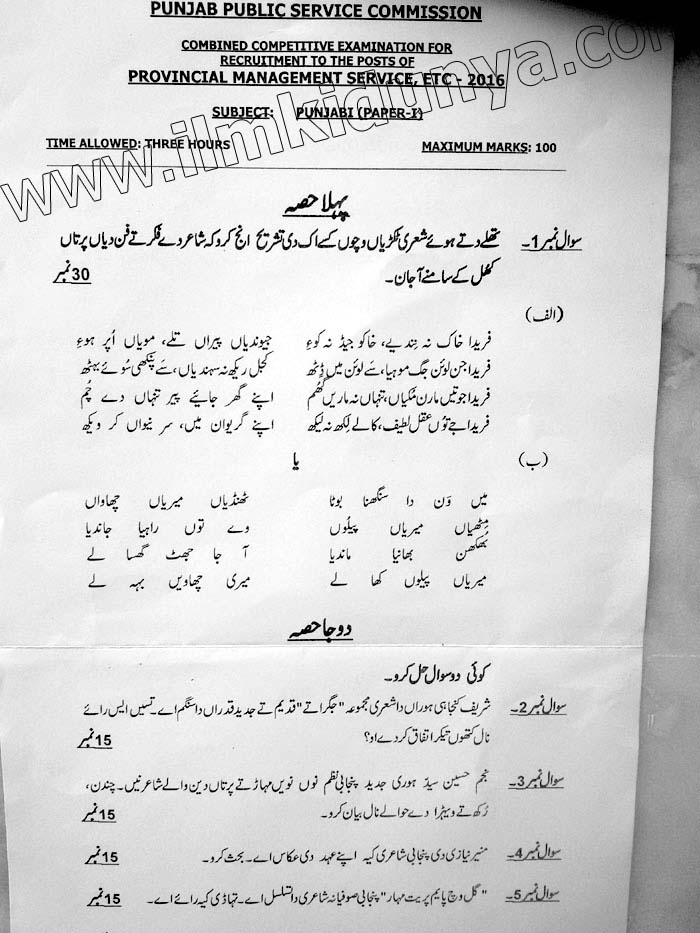 PUNJAB PUBLIC SERVICE COMMISSION
COMBINED COMPETITIVE EXAMINATION FOR
RECRUITMENT TO THE POSTS OF
PROVINCIAL MANAGEMENT SERVICE, ETC - 2016
SUBJECT: PUNJABI (PAPER-I)
TIME ALLOWED: THREE HOURS MAXIMUM MARKS: 100
www.ilmkidunya.com
پہلا حصہ
سوال نمبر 1۔ تھلے دتے ہوئے شعری ٹکڑیاں وچوں کسے اک دی تشریح انج کرو کہ شاعر دے فکر تے فن دیاں پرتاں
کھُل کے سامنے آ جان۔ 30 نمبر
(الف)
فریدا خاک نہ نِندیے، خاکو جیڈ نہ کوءِ جیوندیاں پیراں تلے، مویاں اُپر ہوءِ
فریدا جن لوئن جگ موہیا، سَے لوئن میں ڈِٹھ کجل ریکھ نہ سہندیاں، سَے پنکھی سُوئے بہٹھ
فریدا جو تیں مارن مُکیاں، تنہاں نہ ماریں گھُم اپنے گھر جائیے پیر تنہاں دے چُم
فریدا جے توُں عقل لطیف، کالے لِکھ نہ لیکھ اپنے گریوان میں، سر نیواں کر ویکھ
یا
(ب)
میں وَن دا سنگھنا بوٹا ٹھنڈیاں میریاں چھاواں
مِٹھیاں میریاں پیلُوں وے توں راہیا جاندیا
بُھکھن بھانیا ماندیا آ جا جھٹ گھسا لے
میریاں پیلوں کھا لے میری چھاویں بہہ لے
دوجا حصہ
کوئی دو سوال حل کرو۔
سوال نمبر 2۔ شریف کنجاہی ہوراں دا شعری مجموعہ "جگراتے" قدیم تے جدید قدراں دا سنگم اے۔ تسیں ایس رائے
نال کتھوں تیکر اتفاق کردے او؟ 15 نمبر
سوال نمبر 3۔ نجم حسین سیدّ ہوری جدید پنجابی نظم نوں نویں مہاڑ تے پرتاں دین والے شاعر نیں۔ چندن،
رُکھ تے ویہڑا دے حوالے نال بیان کرو۔ 15 نمبر
سوال نمبر 4۔ منیر نیازی دی پنجابی شاعری کیہ اپنے عہد دی عکاس اے۔ بحث کرو۔ 15 نمبر
سوال نمبر 5۔ "گل وچ پایم پریت مہار" پنجابی صوفیانہ شاعری دا تسلسل اے۔ تہاڈی کیہ رائے اے۔ 15 نمبر